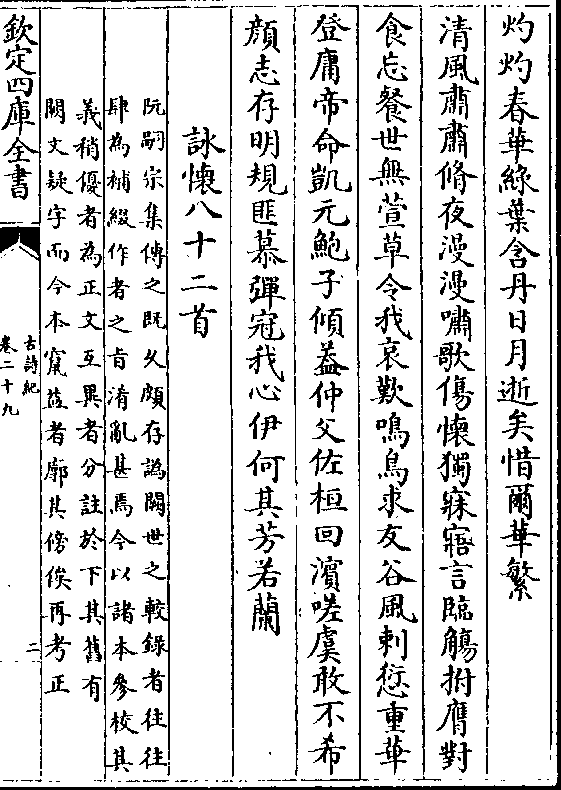 灼灼春華綠葉含丹日月逝矣惜爾華繁
清風肅肅脩夜漫漫嘯歌傷懷獨寐寤言臨觴拊膺對
食忘餐世無萱草令我哀歎鳴鳥求友谷風刺愆重華
登庸帝命凱元鮑子傾葢仲父佐桓回濱嗟虞敢不希
顔志存明規匪慕彈冠我心伊何其芳若蘭
詠懐八十二首
阮嗣宗集傳之既久頗存譌闕世之較錄者往往
肆為補綴作者之旨淆亂甚焉今以諸本參校其
義稍優者為正文互異者分註於下其舊有
闕文疑字而今本竄益者廓其傍俟再考正
欽定四庫全書
古詩紀
卷二十九
二